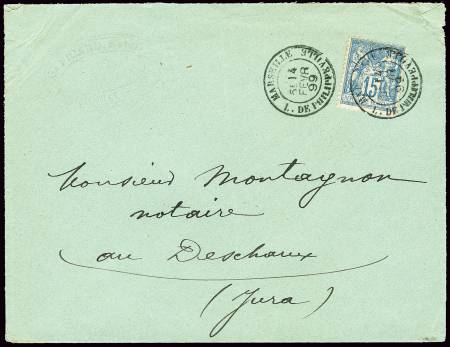 MARSEILLE
5E 14
FEVR
99
L. DE PHILIPPEVILLE
15
L. DE PHILIPPEVILLE
Monsieur Montagnon
notaire
au Deschaux
(Jura)